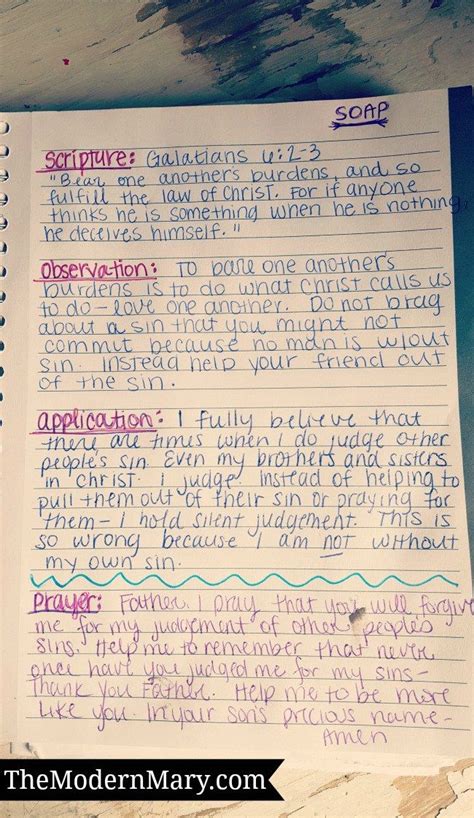 SOAP
Scripture: Galatians 6:2-3
"Bear one another's burdens, and so
fulfill the law of Christ. For if anyone
thinks he is something when he is nothing,
he deceives himself."
Observation: To bare one another's
burdens is to do what Christ calls us
to do - love one another. Do not brag
about a sin that you might not
commit because no man is w/out
sin. Instead help your friend out
of the sin.
Application: I fully believe that
there are times when I do judge other
people's sin. Even my brothers and sisters
in Christ. I judge. Instead of helping to
pull them out of their sin or praying for
them - I hold silent judgement. This is
so wrong because I am not without
my own sin.
Prayer: Father, I pray that you will forgive
me for my judgement of other people's
sins. Help me to remember that never
once have you judged me for my sins -
Thank you Father. Help me to be more
like you. In your son's precious name -
Amen
TheModernMary.com